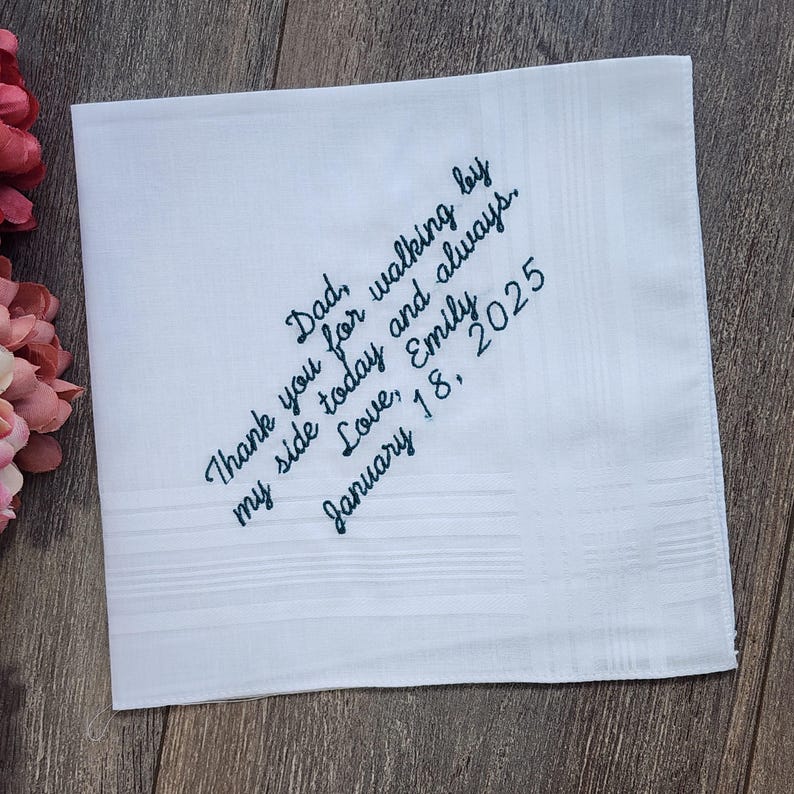 Dad,
Thank you for walking by
my side today and always.
Love, Emily
January 18, 2025